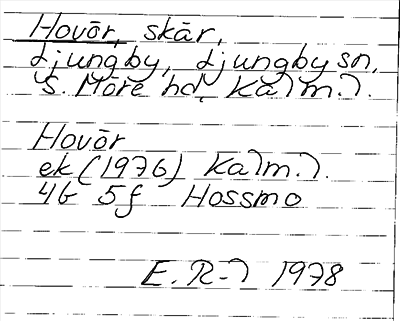 Hovör, skär,
Ljungby, Ljungby sn,
S. Möre hd, Kalm. l.
Hovör
ek (1976) Kalm. l.
4G 5f Hossmo
E. R-l 1978